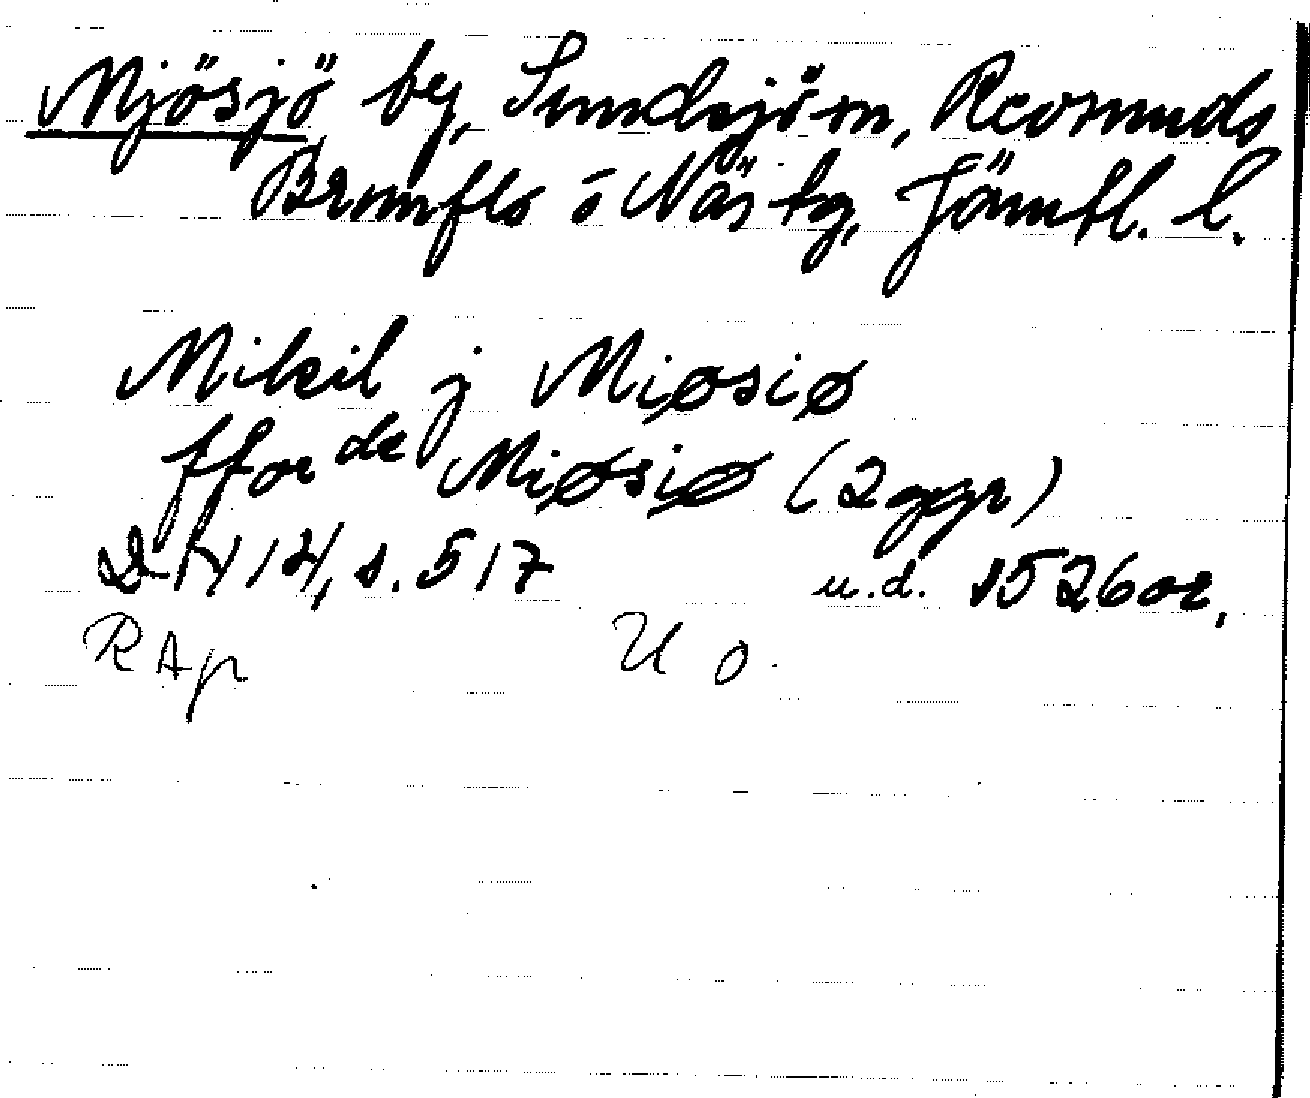 Mjösjö by, Sundsjö sn, Revsunds
Brunflo o Näs tg, Jämtl. l.
Mikil j Miøsiø
ffor de Miøsiø (2 ggr)
DN 14, s. 517 u.d. 1526 or.
RAp U O.